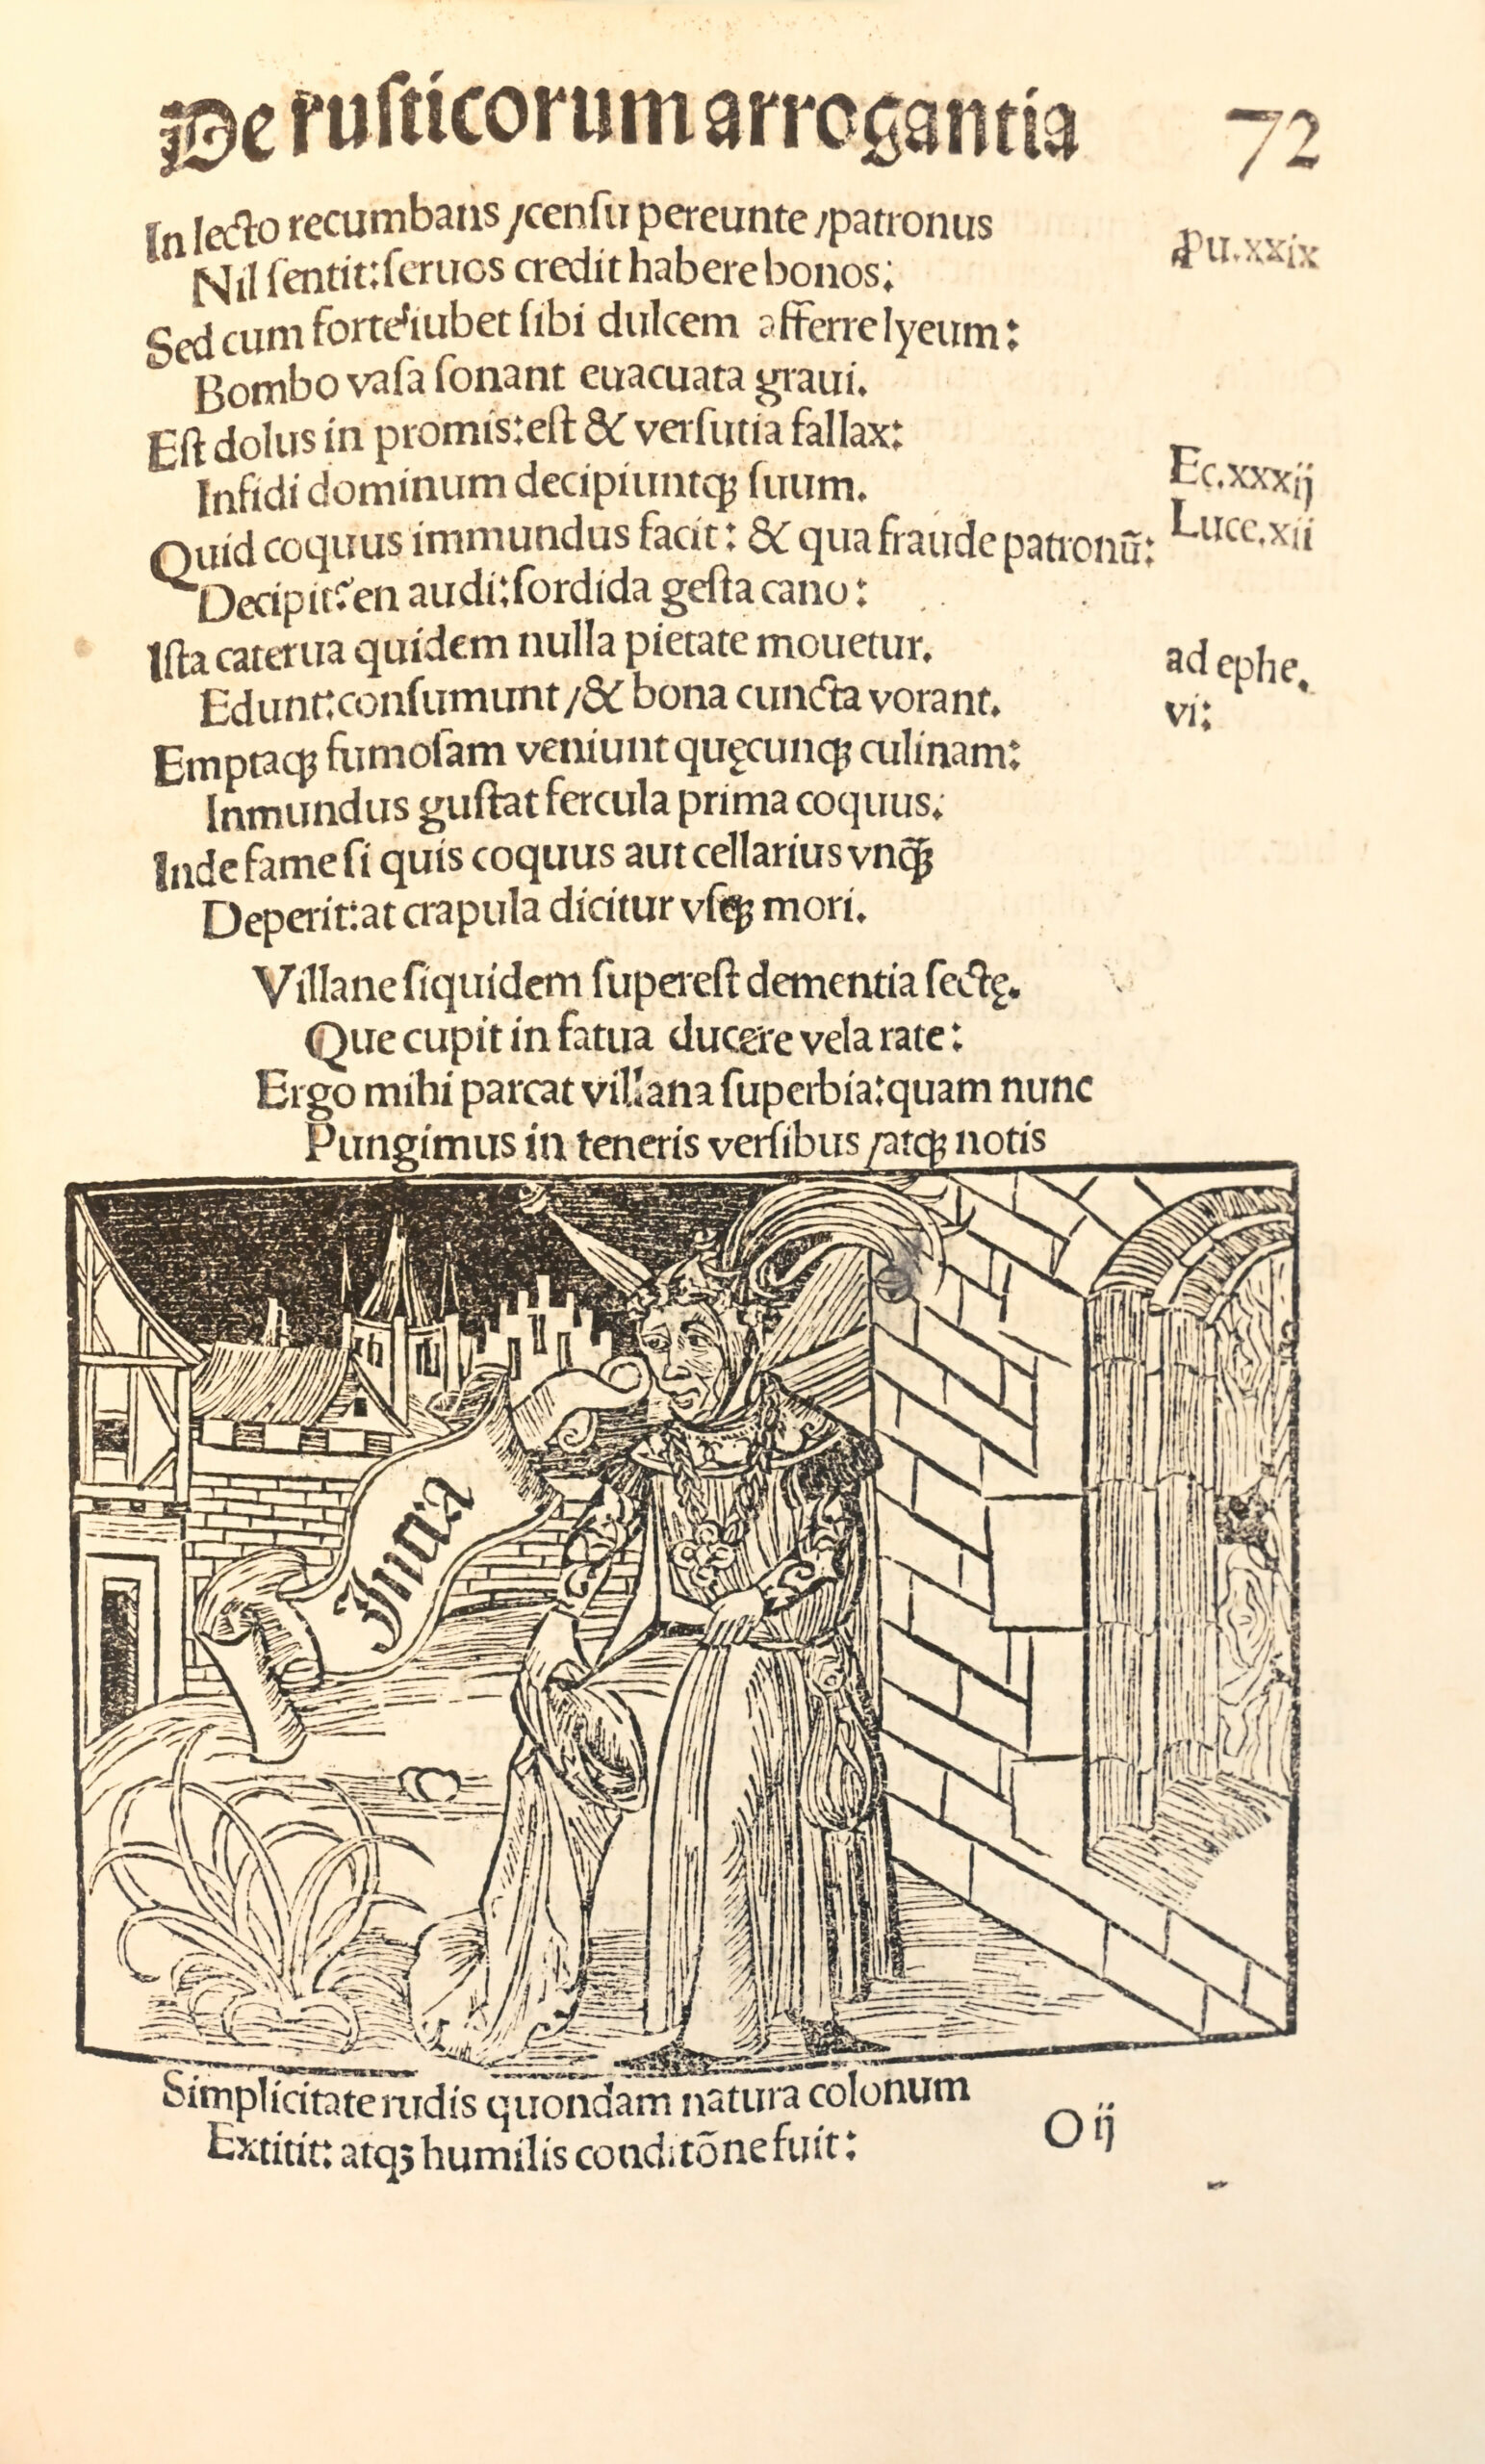 De rusticorum arrogantia 72
In lecto recumbans /censu pereunte /patronus
Pu.xxix
Nil sentit:seruos credit habere bonos:
Sed cum forte iubet sibi dulcem afferre lyeum:
Bombo vasa sonant euacuata graui.
Est dolus in promis:est & versutia fallax:
Ec.xxxij
Infidi dominum decipiuntqꝫ suum.
Luce.xii
Quid coquus immundus facit: & qua fraude patronū:
Decipit? en audi:sordida gesta cano:
Ista caterua quidem nulla pietate mouetur.
ad ephe.
Edunt:consumunt /& bona cuncta vorant.
vi:
Emptaqꝫ fumosam veniunt quęcunqꝫ culinam:
Inmundus gustat fercula prima coquus:
Inde fame si quis coquus aut cellarius vnqꝫ̄
Deperit:at crapula dicitur vsqꝫ mori.
Villane siquidem superest dementia sectę.
Que cupit in fatua ducere vela rate:
Ergo mihi parcat villana superbia:quam nunc
Pungimus in teneris versibus /atqꝫ notis
Simplicitate rudis quondam natura colonum
Extitit: atqꝫ humilis conditōne fuit:
O ij